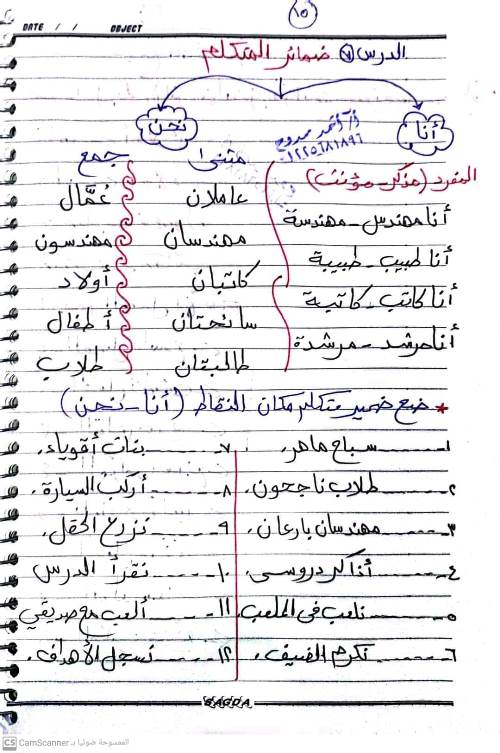 ١٥
DATE / / OBJECT
الدرس ٧ ضمائر المتكلم
أنا
نحن
أ/ أحمد ممدوح
المفرد (مذكر - مؤنث)
مثنى
جمع
أنا مهندس - مهندسة
أنا طبيب - طبيبة
أنا كاتب - كاتبة
أنا مرشد - مرشدة
عاملان
عُمَّال
مهندسان
مهندسون
كاتبان
أولاد
سائحتان
أطفال
طالبتان
طلاب
* ضع ضمير متكلم مكان النقاط (أنا - نحن)
١- ...... سباح ماهر.
٢- ...... طلاب ناجحون.
٣- ...... مهندسان بارعان.
٤- ...... أذاكر دروسى.
٥- ...... نلعب فى الملعب.
٦- ...... نكرم الضيف.
٧- ...... بنات أقوياء.
٨- ...... أركب السيارة.
٩- ...... نزرع الحقل.
١٠- ...... نقرأ الدرس
١١- ...... ألعب مع صديقي
١٢- ...... نسجل الأهداف.
BAGDA
CS CamScanner الممسوحة ضوئيا بـ